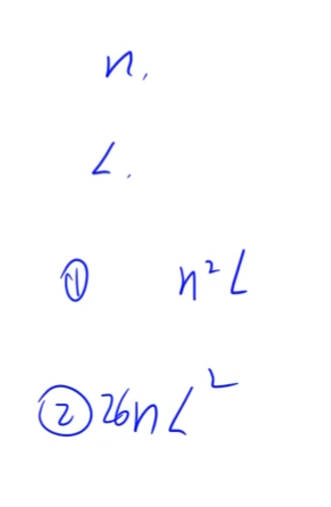 n.
L.
① n²L
② 26nL²